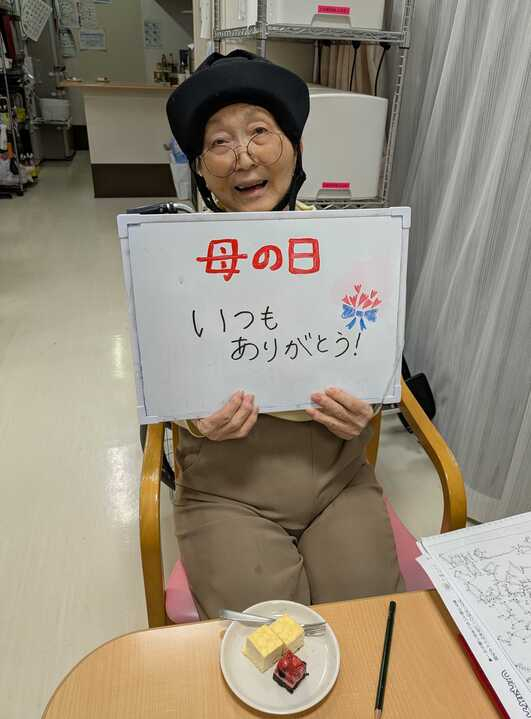 母の日
いつも
ありがとう!